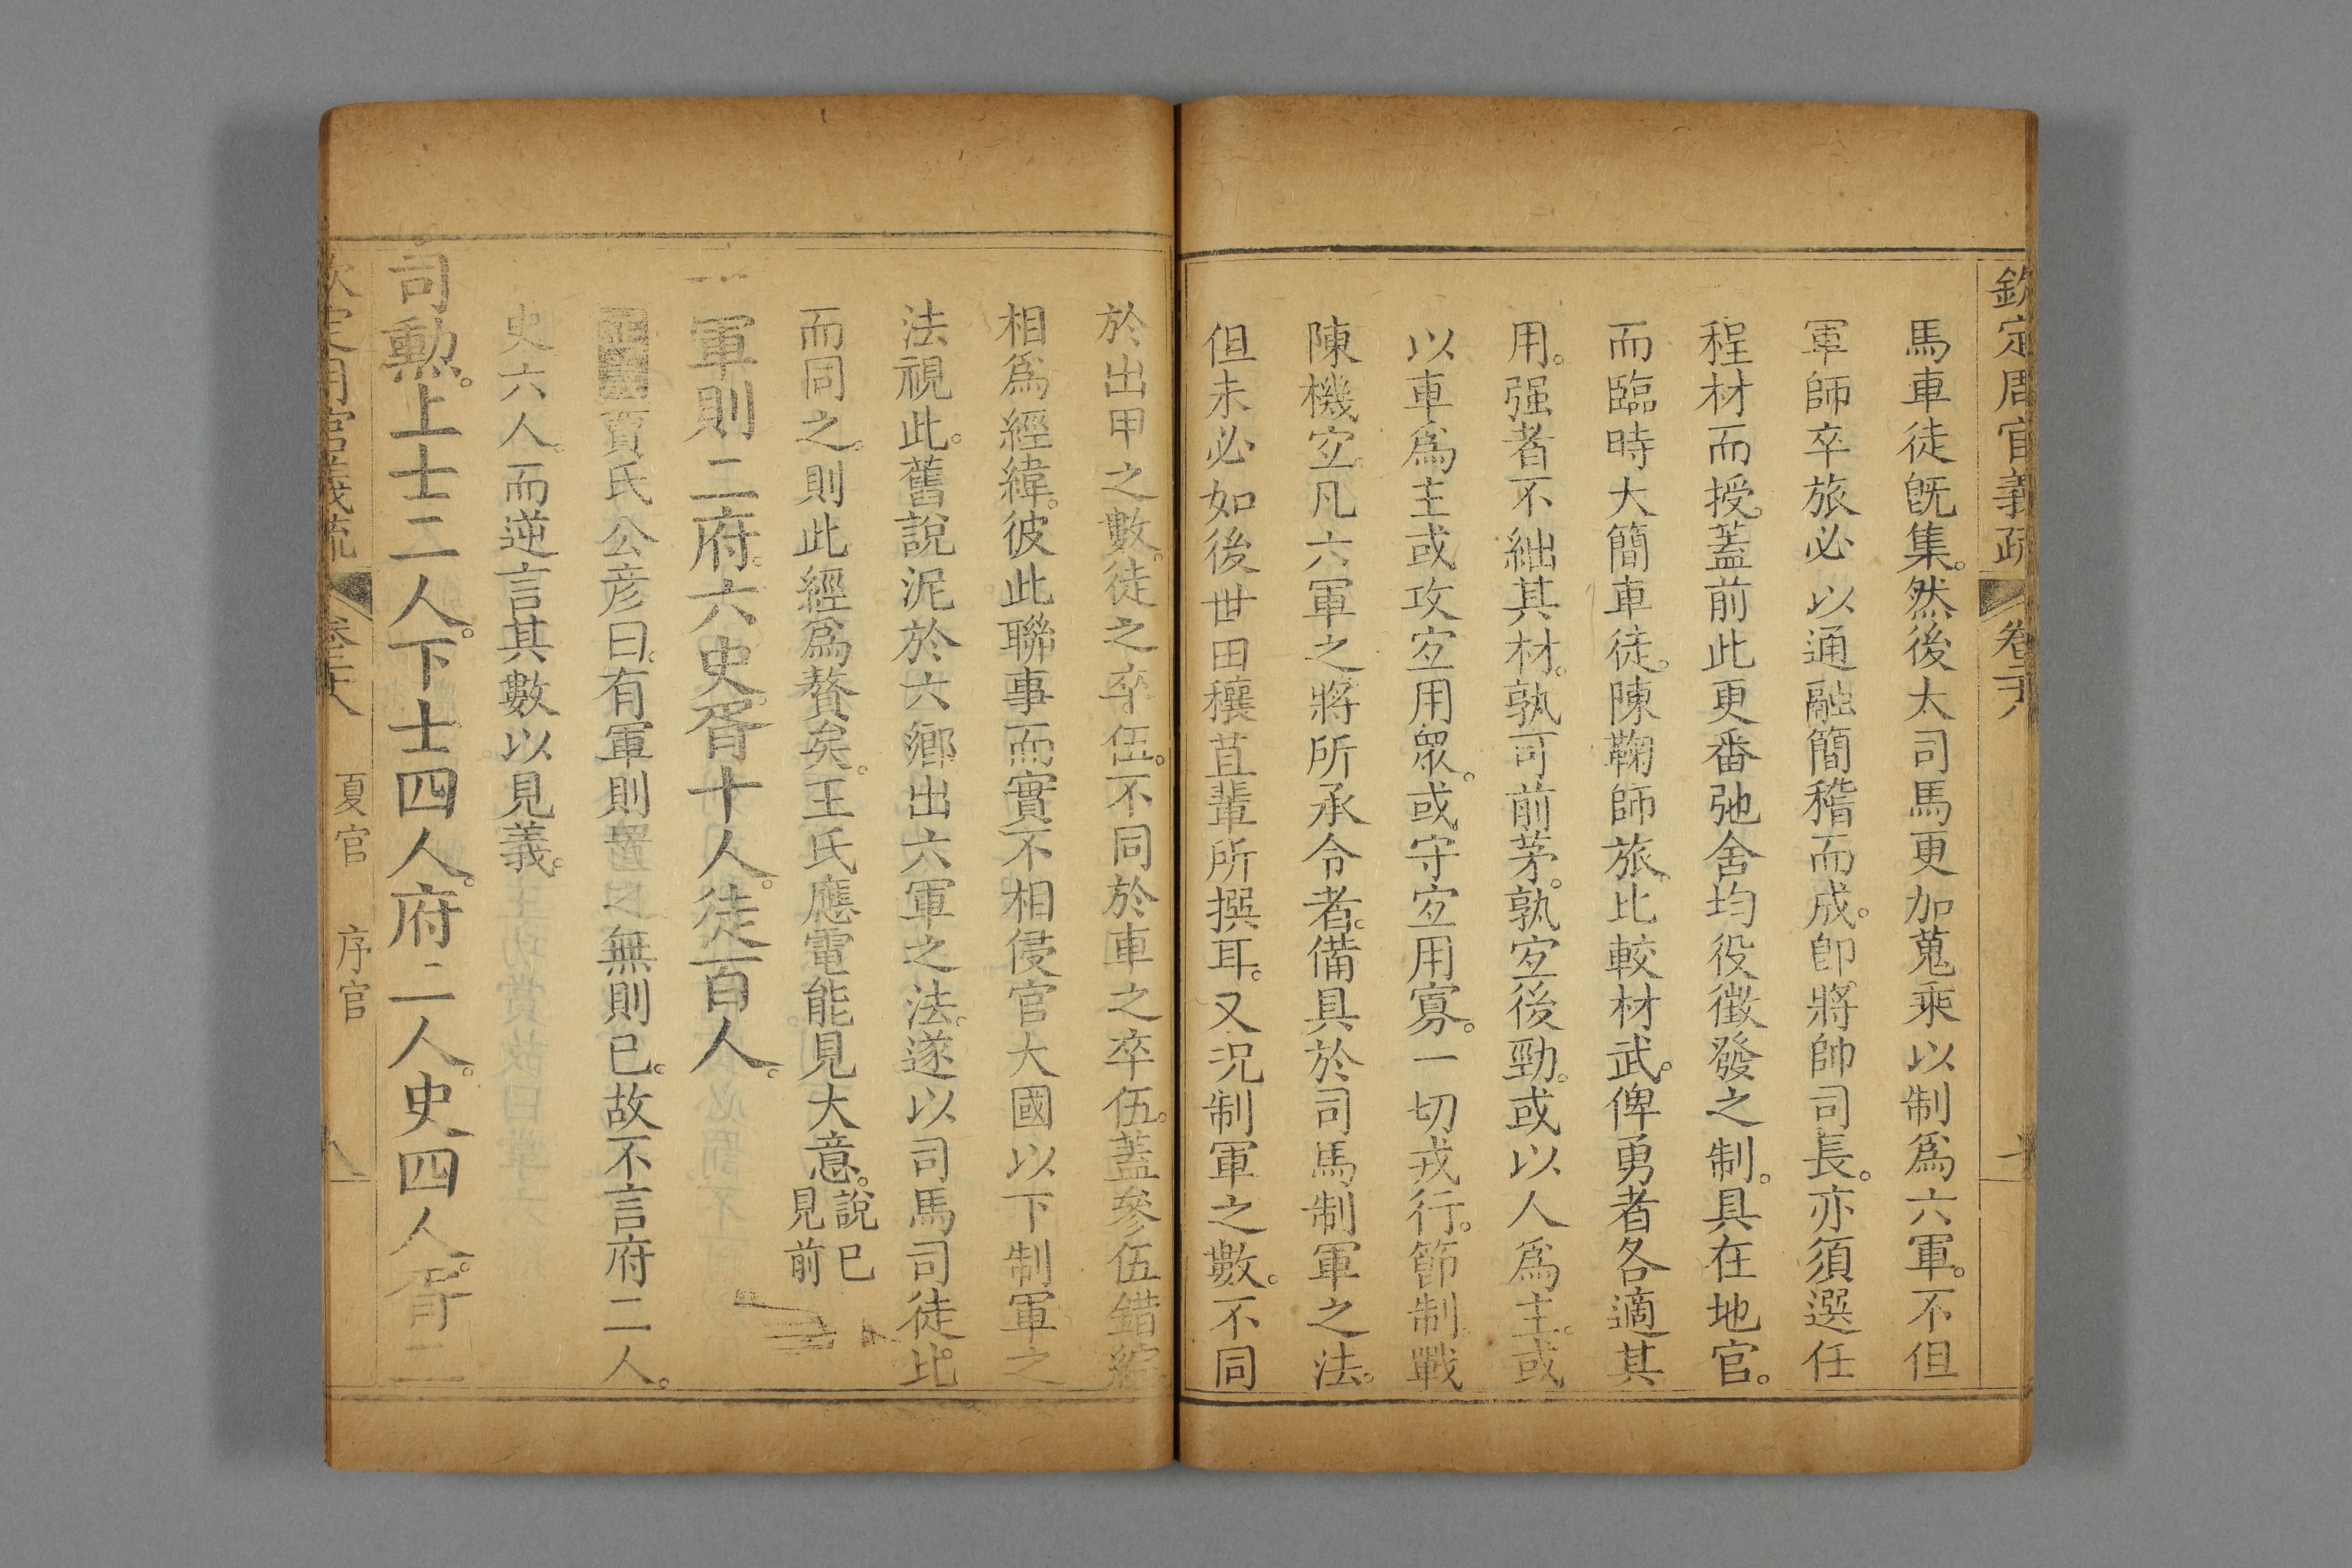 欽定周官義疏 卷二十八
馬車徒既集。然後太司馬更加蒐乘以制爲六軍。不但
軍師卒旅必以通融簡稽而成。卽將帥司長。亦須選任
程材而授。蓋前此更番弛舍均役徵發之制。具在地官。
而臨時大簡車徒。陳鞠師旅。比較材武。俾勇者各適其
用。强者不絀其材。孰可前茅。孰宐後勁。或以人爲主。或
以車爲主或攻宐用衆。或守宐用寡。一切戎行。節制。戰
陳機宐。凡六軍之將所承令者。備具於司馬制軍之法。
但未必如後世田穰苴輩所撰耳。又況制軍之數。不同
於出甲之數。徒之卒伍。不同於車之卒伍。蓋參伍錯綜
相爲經緯。彼此聯事而實不相侵官大國以下制軍之
法視此。舊說泥於六鄉出六軍之法。遂以司馬司徒。比
而同之。則此經爲贅矣。王氏應電能見大意。說已見前
一軍則二府。六史。胥十人。徒百人。
賈氏公彦曰。有軍則置之無則已。故不言府二人。
史六人。而逆言其數以見義。
司勲。上士二人。下士四人。府二人。史四人。胥二
欽定周官義疏 卷二十八 夏官 序官 八